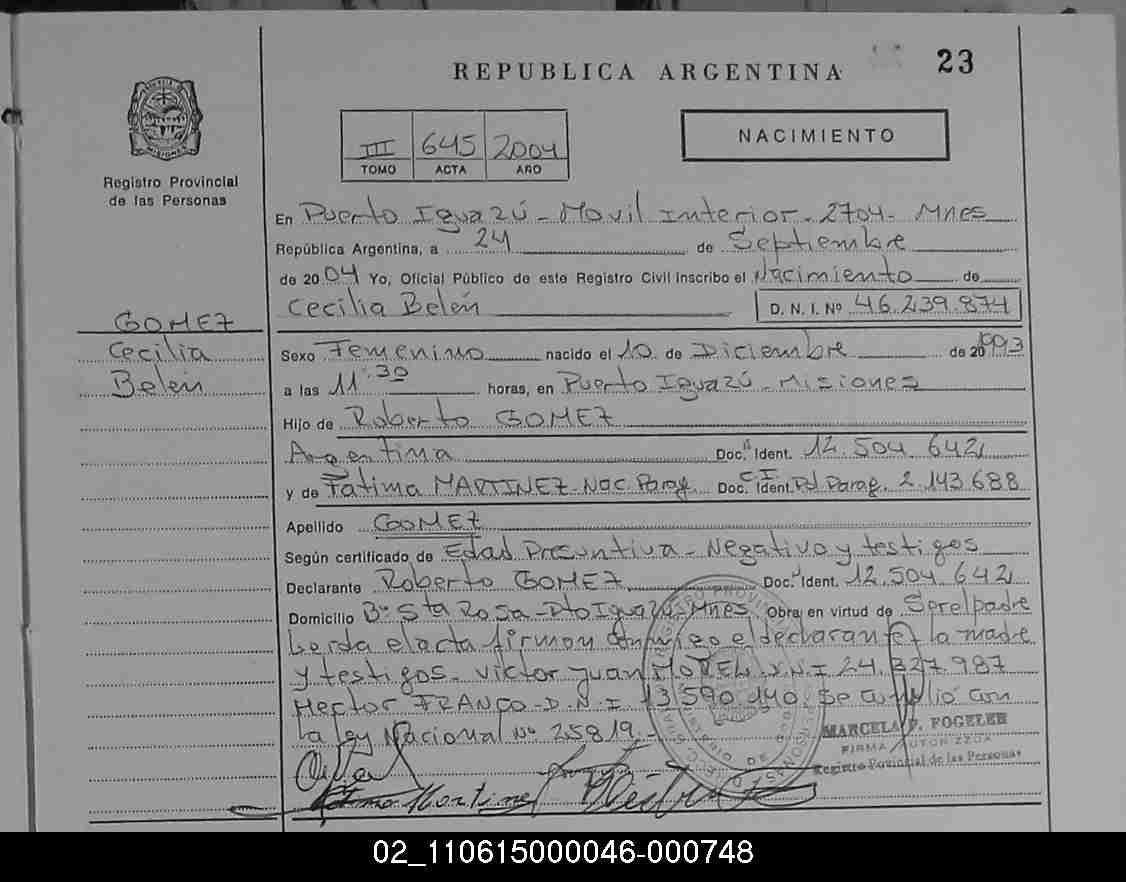 23
REPUBLICA ARGENTINA
III 645 2004
TOMO ACTA AÑO
NACIMIENTO
MISIONES
Registro Provincial
de las Personas
En Puerto Iguazú - Movil Interior - 2704 - Mnes
República Argentina, a 24 de Septiembre
de 2004 Yo, Oficial Público de este Registro Civil inscribo el Nacimiento de
Cecilia Belén D. N. I. Nº 46.239.874
GOMEZ
Cecilia
Belén
Sexo Femenino nacido el 10 de Diciembre de 20 1993
a las 11:30 horas, en Puerto Iguazú - Misiones
Hijo de Roberto GOMEZ
Argentina Doc. Ident. 12.504.642
y de Fatima MARTINEZ Nac. Parag. Doc. C.I. Ident. Pol Parag. 2.143.688
Apellido GOMEZ
Según certificado de Edad Presuntiva - Negativo y testigos
Declarante Roberto GOMEZ Doc. Ident. 12.504.642
Domicilio Bº Sta Rosa - Pto Iguazú - Mnes Obra: en virtud de Ser el padre
Leida el acta firman conmigo el declarante, la madre
y testigos. Victor Juan MOREL D.N.I 24.327.987
Hector FRANCO - D.N.I 13.590.140 Se cumplió con
la ley Nacional Nº 25819.-
MARCELA P. FOGELER
FIRMA AUTORIZADA
Registro Provincial de las Personas
02_110615000046-000748